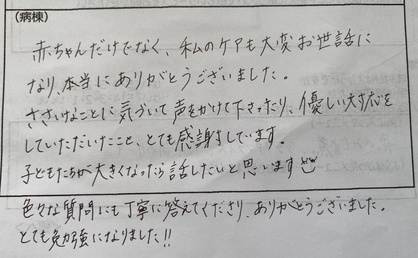 (病棟)
赤ちゃんだけでなく、私のケアも大変お世話に
なり、本当にありがとうございました。
ささいなことに気づいて声をかけて下さったり、優しい対応を
していただいたこと、とても感謝しています。
子どもたちが大きくなったら話したいと思います
色々な質問にも丁寧に答えてくださり、ありがとうございました。
とても勉強になりました!!